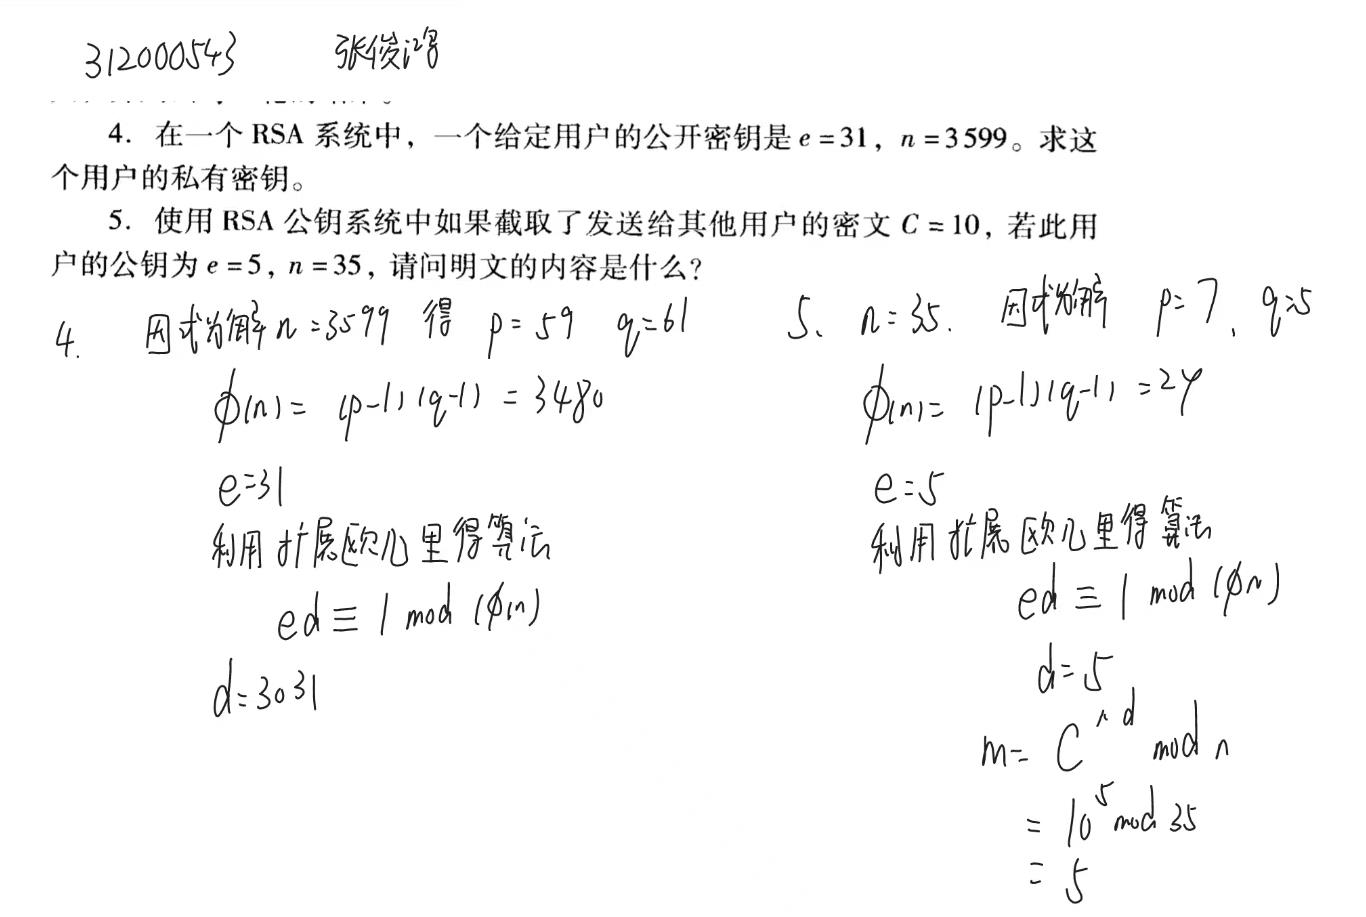 312000543 张俊鸿
4. 在一个 RSA 系统中，一个给定用户的公开密钥是 e = 31，n = 3 599。求这
个用户的私有密钥。
5. 使用 RSA 公钥系统中如果截取了发送给其他用户的密文 C = 10，若此用
户的公钥为 e = 5，n = 35，请问明文的内容是什么？
4. 因式分解 n = 3599 得 p = 59 q = 61
ϕ(n) = (p-1)(q-1) = 3480
e=31
利用扩展欧几里得算法
ed ≡ 1 mod (ϕ(n)
d=3031
5、 n = 35. 因式分解 p = 7、q=5
ϕ(n) = (p-1)(q-1) = 24
e=5
利用扩展欧几里得算法
ed ≡ 1 mod (ϕn)
d=5
m = C^d mod n
= 10^5 mod 35
= 5